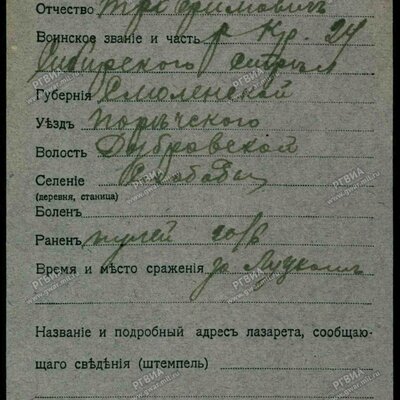 Отчество Трофимовичъ
Воинское званіе и часть р Кр. 24
Сибирского стрѣлк
Губернія Смоленской
Уѣздъ Порѣчского
Волость Дубровской
Селеніе
(деревня, станица)
Боленъ
Раненъ пулей
Время и мѣсто сраженія
Названіе и подробный адресъ лазарета, сообщаю-
щаго свѣдѣнія (штемпель)